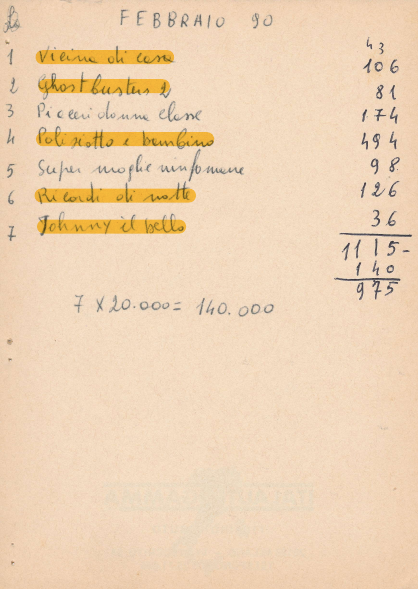 FEBBRAIO 90
43
1 Vicina di casa 106
2 Ghostbusters 2 81
3 Piaceri donna classe 174
4 Poliziotto e bambino 494
5 Super moglie ninfomane 98
6 Ricordi di notte 126
7 Johnny il bello 36
1115-
140
975
7 X 20.000= 140.000